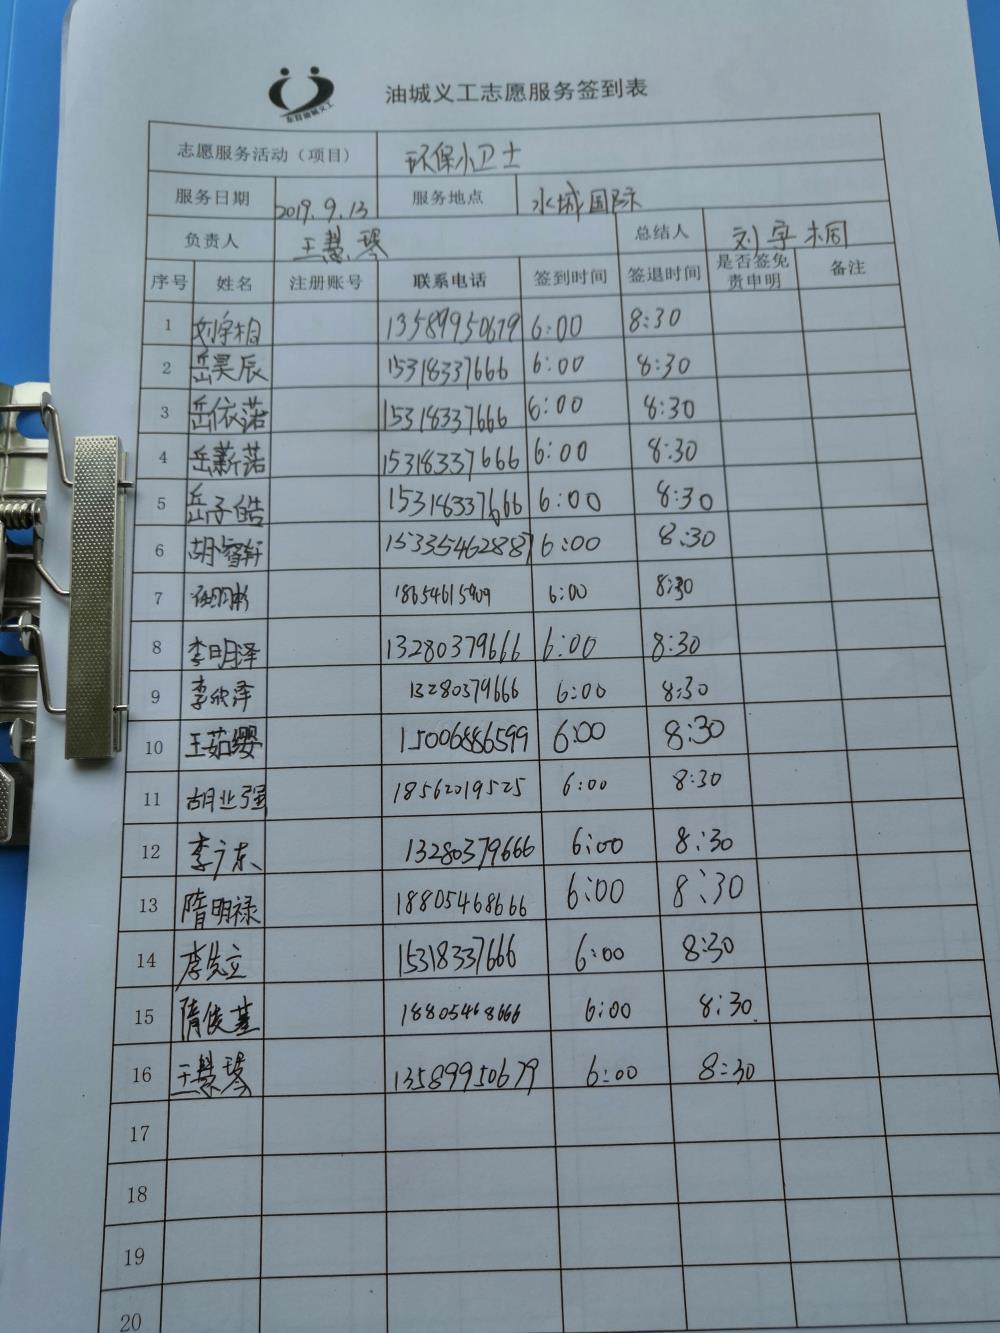 东营油城义工
油城义工志愿服务签到表
志愿服务活动（项目） 环保小卫士
服务日期 2019.9.13 服务地点 水城国际
负责人 王慧琴 总结人 刘宇桐
序号 姓名 注册账号 联系电话 签到时间 签退时间 是否签免责申明 备注
1 刘宇桐 13589950679 6:00 8:30
2 岳昊辰 15318337666 6:00 8:30
3 岳依诺 15318337666 6:00 8:30
4 岳薪诺 15318337666 6:00 8:30
5 岳子皓 15318337666 6:00 8:30
6 15335462887 6:00 8:30
7 18654615909 6:00 8:30
8 李明泽 13280379666 6:00 8:30
9 李欣泽 13280379666 6:00 8:30
10 王茹缨 15006886599 6:00 8:30
11 胡业强 18562019525 6:00 8:30
12 李广东 13280379666 6:00 8:30
13 隋明禄 18805468666 6:00 8:30
14 李先立 15318337666 6:00 8:30
15 隋俊堇 18805468666 6:00 8:30
16 王慧琴 13589950679 6:00 8:30
17
18
19
20